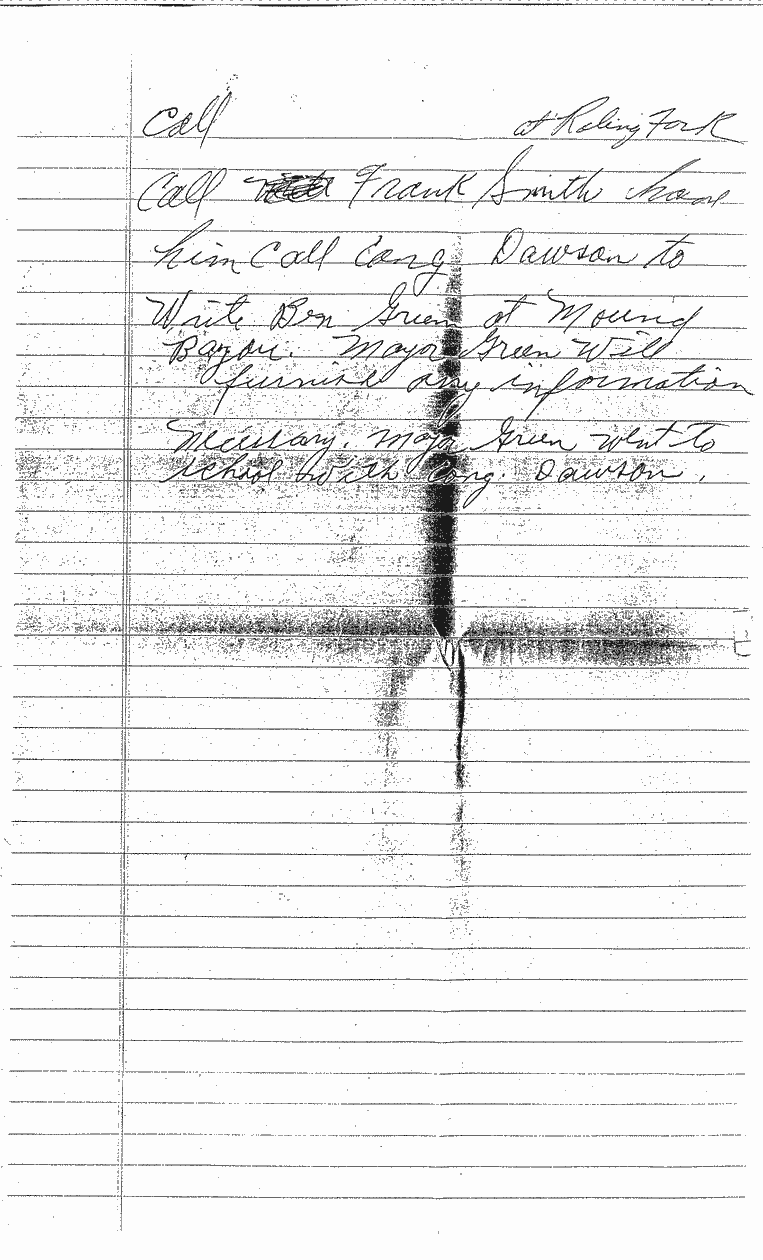 Call at Roling Fork
Call Frank Smith have
him Call Cong Dawson to
Write Ben Green at Mound
Bayou. Mayor Green Will
furnish any information
Necessary. Mayor Green went to
school with Cong. Dawson.